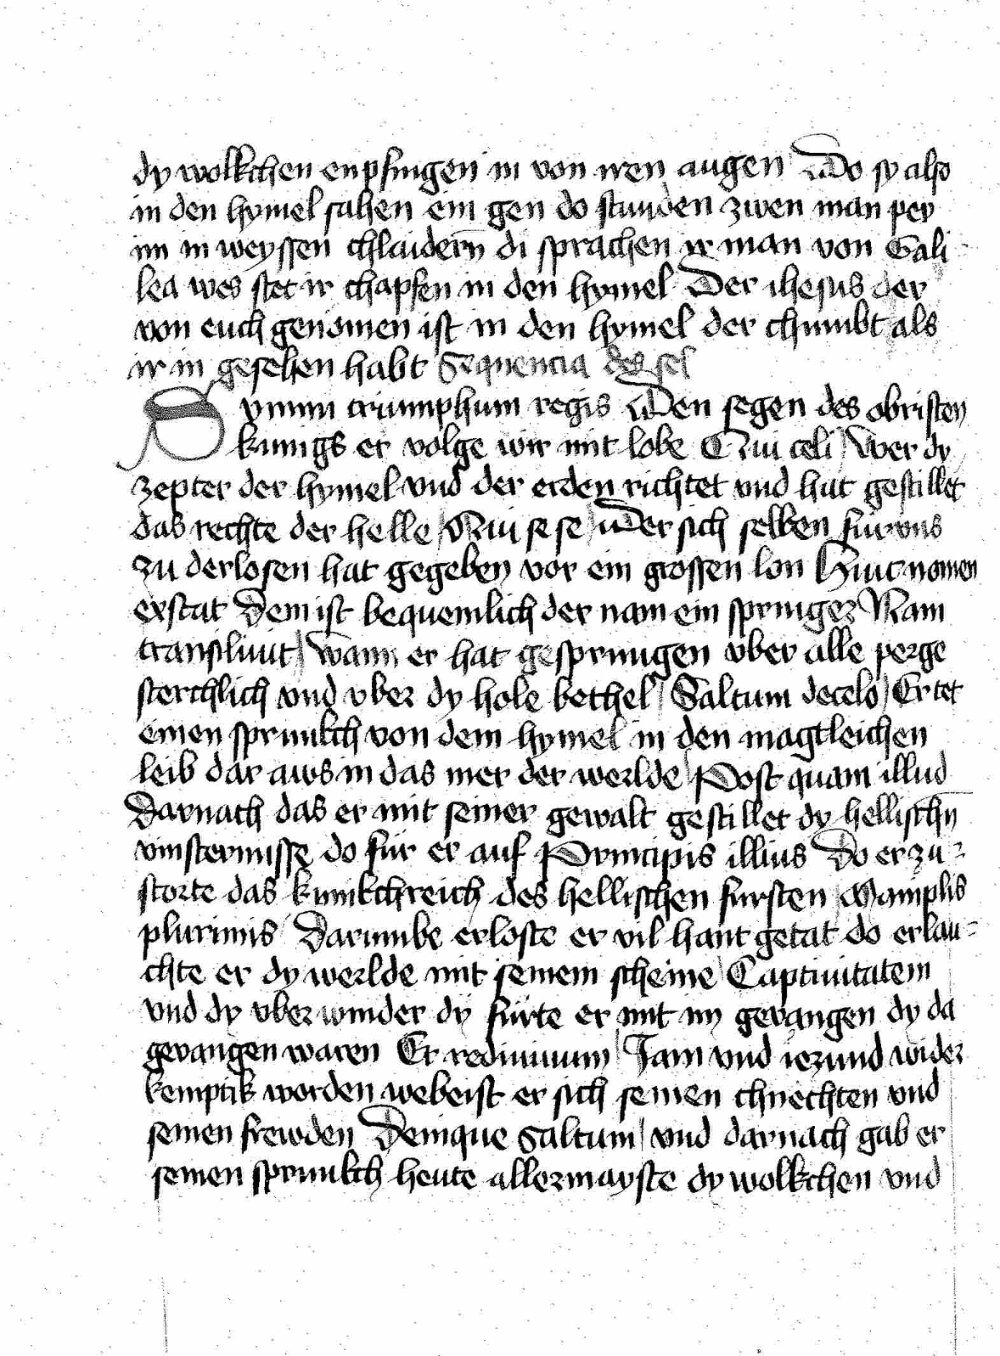 dy wolkchen enpfingen in von iren augen Do sy also
in den hymel sahen ein gen do stunden zwen man pey
im in weyssen chlaidern di sprachen ir man von Gali
lea wes stet ir chapfen in den hymel Der ihesus der
von euch genomen ist in den hymel der chumbt als
ir in gesehen habt Sequencia
Summi triumphum regis Den segen des obristen
kunigs er volge wir mit lobe Qui celi Wer dy
zepter der hymel vnd der erden richtet vnd hat gestillet
das rechte der helle Qui sese Der sich selben fur vns
zu derlosen hat gegeben vor ein grossen lon Huic nomen
exstat Dem ist bequemlich der nam ein springer Nam
transiliuit Wann er hat gesprungen vber alle perge
sterchlich vnd vber dy hole bethel Saltum decelo Er tet
einen sprunkch von dem hymel in den magtleichen
leib dar aws in das mer der werlde Post quam illud
Darnach das er mit seiner gewalt gestillet dy hellischn
vinsternisse do fur er auf Principis illius Do er zu-
storte das kunikchreich des hellischen fursten Manplis
plurimis Darumbe erloste er vil hant getat do erlau-
chte er dy werlde mit seinem scheine Captiuitatem
vnd dy vber winder dy furte er mit im gevangen dy da
gevangen waren Et rediuiuum Jam vnd iezund wider
kemptik worden webeist er sich seinen chnechten vnd
seinen frewden Denique Saltum vnd darnach gab er
seinen sprunkch heute allermayste dy wolkchen vnd